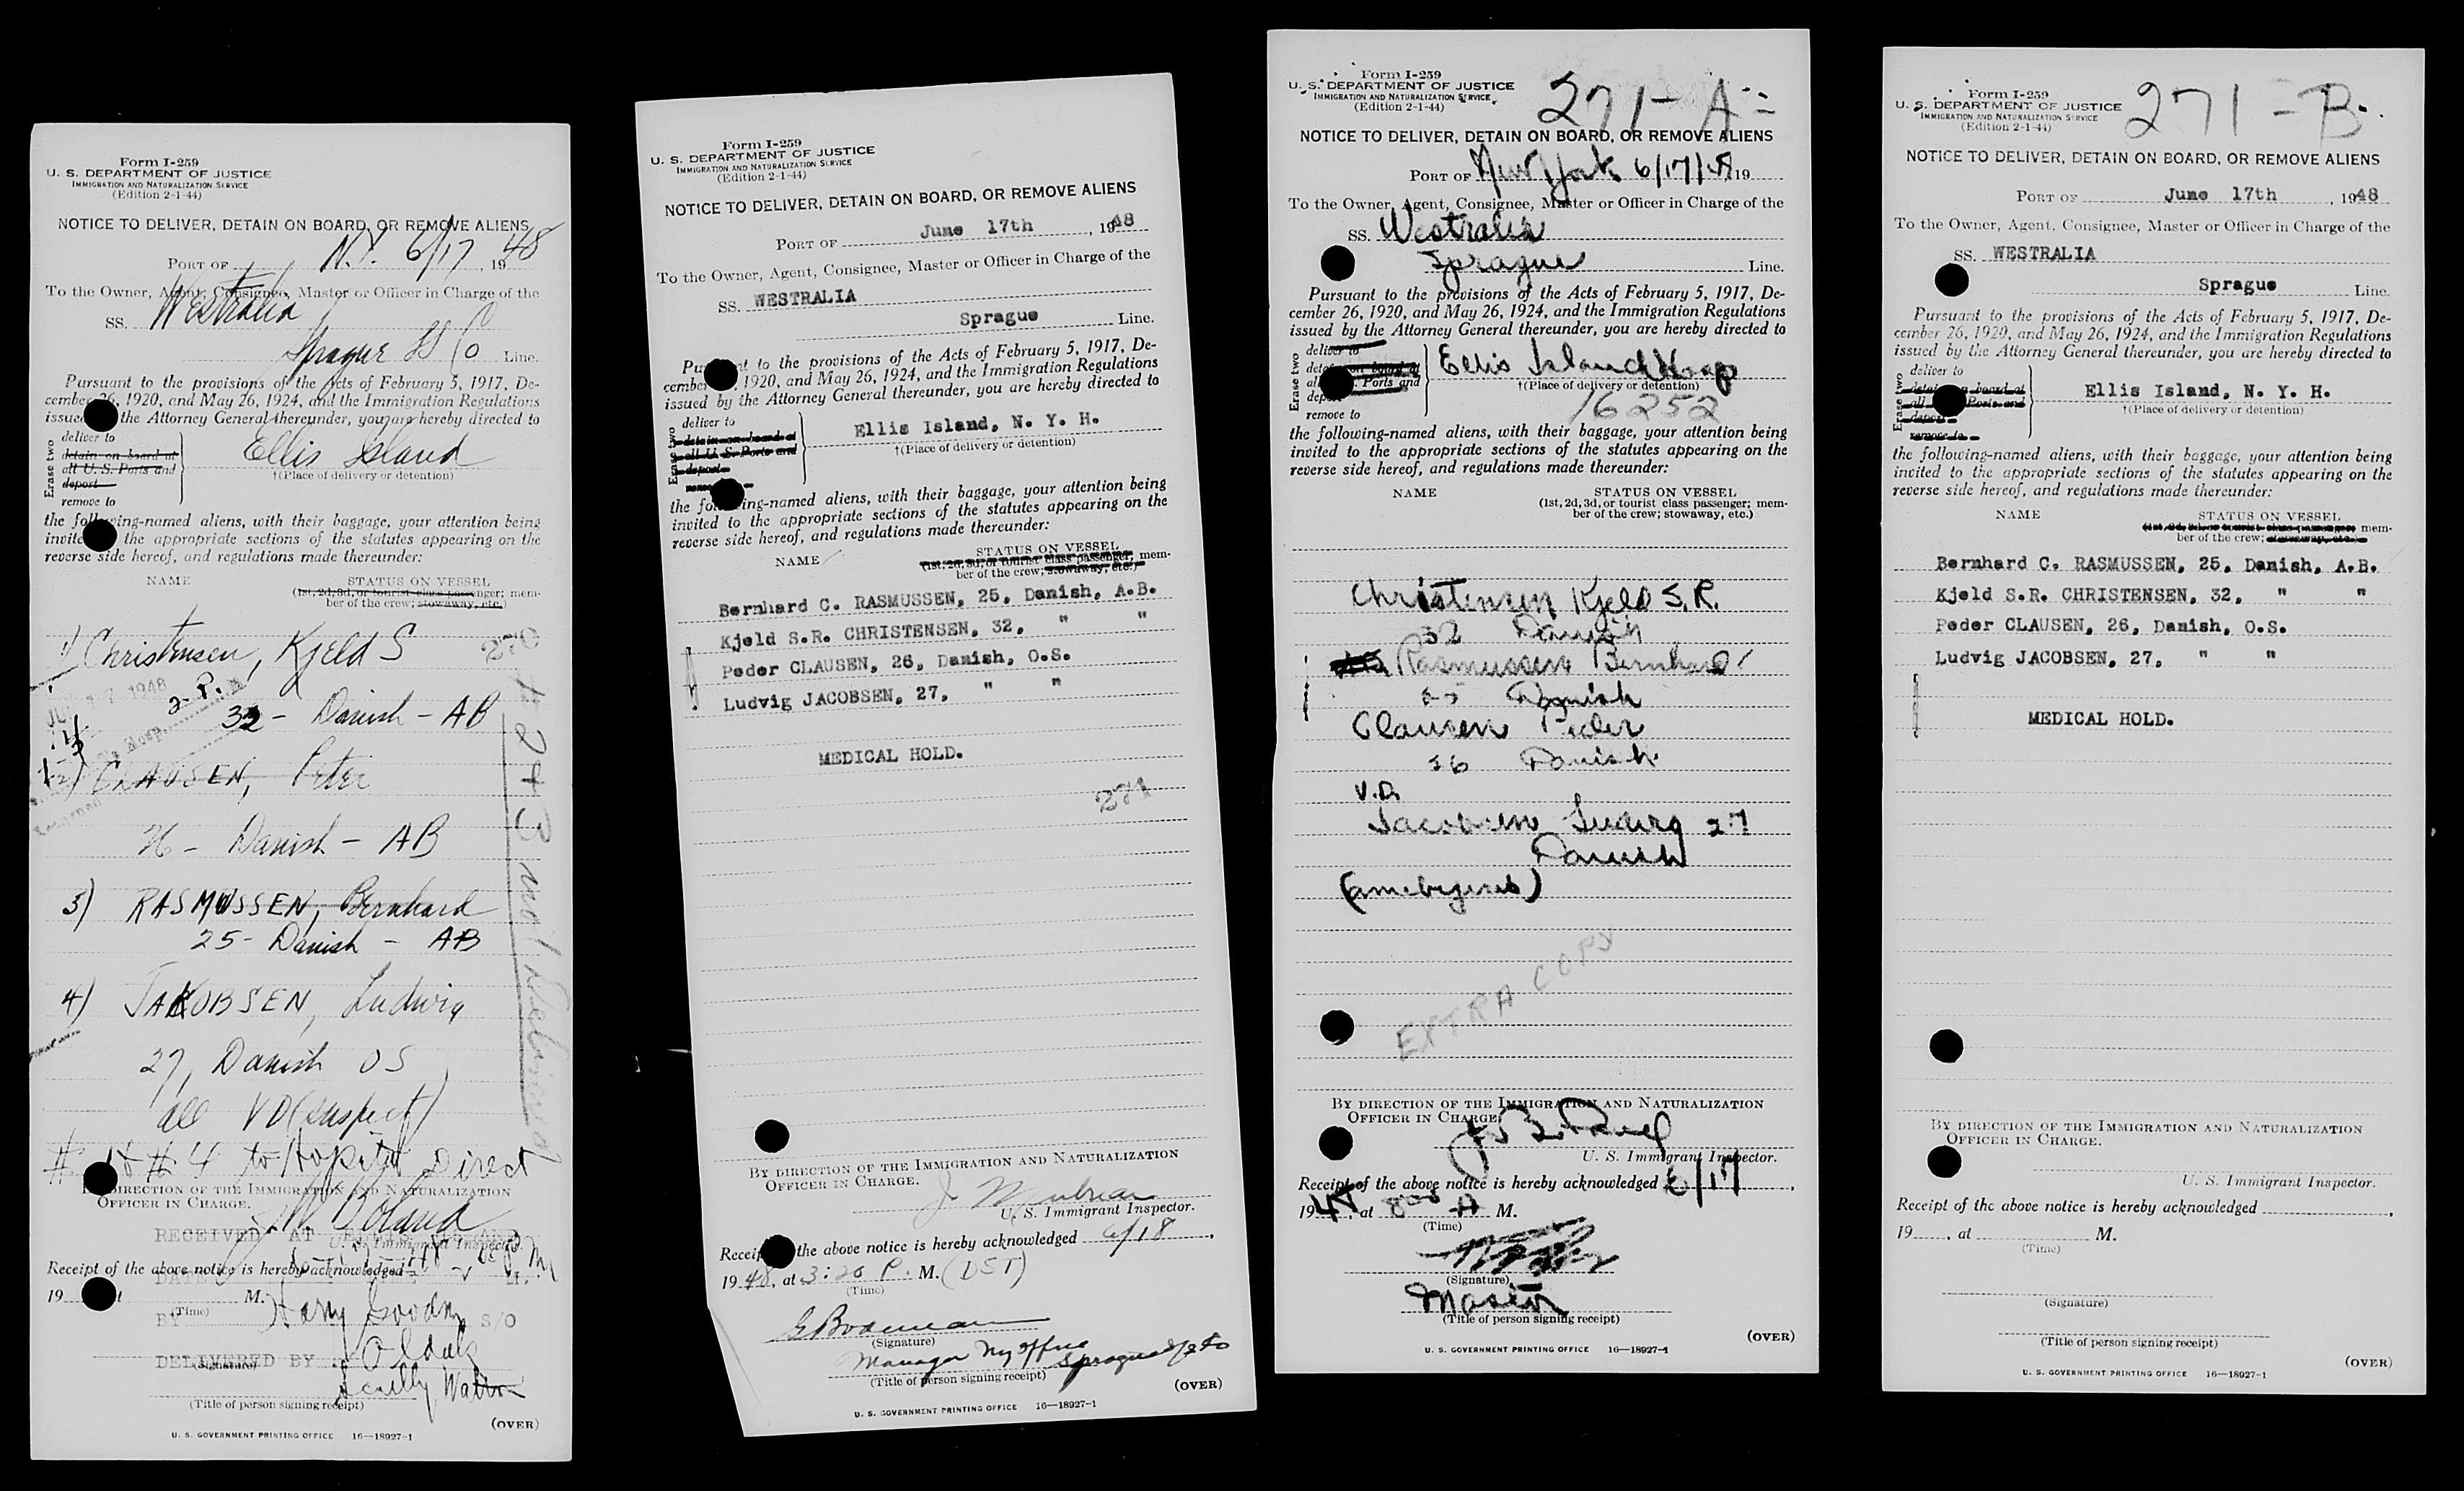 Form I-259
U. S. DEPARTMENT OF JUSTICE
IMMIGRATION AND NATURALIZATION SERVICE
(Edition 2-1-44)
NOTICE TO DELIVER, DETAIN ON BOARD, OR REMOVE ALIENS
PORT OF N.Y. 6/17, 1948
To the Owner, Agent, Consignee, Master or Officer in Charge of the
SS. Westralia
Sprague SS Co Line.
Pursuant to the provisions of the Acts of February 5, 1917, De-
cember 26, 1920, and May 26, 1924, and the Immigration Regulations
issued the Attorney General thereunder, you are hereby directed to
Erase two
deliver to
detain on board at
all U. S. Ports and
deport
remove to
Ellis Island
†(Place of delivery or detention)
the following-named aliens, with their baggage, your attention being
invited the appropriate sections of the statutes appearing on the
reverse side hereof, and regulations made thereunder:
NAME STATUS ON VESSEL
(1st, 2d, 3d, or tourist class passenger; mem-
ber of the crew; stowaway, etc.)
1) Christensen, Kjeld S 270
JUN 17 1948
32 - Danish - AB
2) CLAUSEN, Peter
26 - Danish - AB
3) RASMUSSEN, Bernhard
25 - Danish - AB
4) JAKOBSEN, Ludwig
27, Danish OS
all VD (suspect)
# 1 & # 4 to Hospital Direct
# 2 + 3 not Delivered
BY DIRECTION OF THE IMMIGRATION AND NATURALIZATION
OFFICER IN CHARGE.
RECEIVED AT ELLIS ISLAND
U. S. Immigrant Inspector.
DATE
Receipt of the above notice is hereby acknowledged
19 t M.
(Time)
BY Harry S/O
DELIVERED BY
(Signature)
Scully Walton
(Title of person signing receipt)
(OVER)
U. S. GOVERNMENT PRINTING OFFICE 16—18927-1
Form I-259
U. S. DEPARTMENT OF JUSTICE
IMMIGRATION AND NATURALIZATION SERVICE
(Edition 2-1-44)
NOTICE TO DELIVER, DETAIN ON BOARD, OR REMOVE ALIENS
PORT OF June 17th, 1948
To the Owner, Agent, Consignee, Master or Officer in Charge of the
SS. WESTRALIA
Sprague Line.
Pursuant to the provisions of the Acts of February 5, 1917, De-
cember 1920, and May 26, 1924, and the Immigration Regulations
issued by the Attorney General thereunder, you are hereby directed to
Erase two
deliver to
detain on board at
all U. S. Ports and
deport
remove to
Ellis Island, N. Y. H.
†(Place of delivery or detention)
the following-named aliens, with their baggage, your attention being
invited to the appropriate sections of the statutes appearing on the
reverse side hereof, and regulations made thereunder:
NAME STATUS ON VESSEL
(1st, 2d, 3d, or tourist class passenger; mem-
ber of the crew; stowaway, etc.)
Bernhard C. RASMUSSEN, 25, Danish, A.B.
Kjeld S.R. CHRISTENSEN, 32, " "
Peder CLAUSEN, 26, Danish, O.S.
Ludvig JACOBSEN, 27, " "
MEDICAL HOLD.
271
BY DIRECTION OF THE IMMIGRATION AND NATURALIZATION
OFFICER IN CHARGE.
U. S. Immigrant Inspector.
Receipt the above notice is hereby acknowledged 6/18,
1948, at 3:20 P. M. (DST)
(Time)
(Signature)
Manager NY Office Sprague SS Co
(Title of person signing receipt)
(OVER)
U. S. GOVERNMENT PRINTING OFFICE 16—18927-1
Form I-259
U. S. DEPARTMENT OF JUSTICE
IMMIGRATION AND NATURALIZATION SERVICE
(Edition 2-1-44)
271-A
NOTICE TO DELIVER, DETAIN ON BOARD, OR REMOVE ALIENS
PORT OF New York 6/17/48 19
To the Owner, Agent, Consignee, Master or Officer in Charge of the
SS. Westralia
Sprague Line.
Pursuant to the provisions of the Acts of February 5, 1917, De-
cember 26, 1920, and May 26, 1924, and the Immigration Regulations
issued by the Attorney General thereunder, you are hereby directed to
Erase two
deliver to
detain on board at
all Ports and
deport
remove to
Ellis Island Hosp
†(Place of delivery or detention)
16252
the following-named aliens, with their baggage, your attention being
invited to the appropriate sections of the statutes appearing on the
reverse side hereof, and regulations made thereunder:
NAME STATUS ON VESSEL
(1st, 2d, 3d, or tourist class passenger; mem-
ber of the crew; stowaway, etc.)
Christensen Kjeld S. R.
32 Danish
Rasmussen Bernhard
25 Danish
Clausen Peder
26 Danish
V.D.
Jacobsen Ludvig 27
Danish
EXTRA COPY
BY DIRECTION OF THE IMMIGRATION AND NATURALIZATION
OFFICER IN CHARGE.
U. S. Immigrant Inspector.
Receipt of the above notice is hereby acknowledged 6/17,
1948, at 800 A M.
(Time)
(Signature)
Master
(Title of person signing receipt)
(OVER)
U. S. GOVERNMENT PRINTING OFFICE 16—18927-1
Form I-259
U. S. DEPARTMENT OF JUSTICE
IMMIGRATION AND NATURALIZATION SERVICE
(Edition 2-1-44)
271-B.
NOTICE TO DELIVER, DETAIN ON BOARD, OR REMOVE ALIENS
PORT OF June 17th, 1948
To the Owner, Agent, Consignee, Master or Officer in Charge of the
SS. WESTRALIA
Sprague Line.
Pursuant to the provisions of the Acts of February 5, 1917, De-
cember 26, 1920, and May 26, 1924, and the Immigration Regulations
issued by the Attorney General thereunder, you are hereby directed to
Erase two
deliver to
detain on board at
all Ports and
deport
remove to
Ellis Island, N. Y. H.
†(Place of delivery or detention)
the following-named aliens, with their baggage, your attention being
invited to the appropriate sections of the statutes appearing on the
reverse side hereof, and regulations made thereunder:
NAME STATUS ON VESSEL
(1st, 2d, 3d, or tourist class passenger; mem-
ber of the crew; stowaway, etc.)
Bernhard C. RASMUSSEN, 25, Danish, A.B.
Kjeld S.R. CHRISTENSEN, 32, " "
Peder CLAUSEN, 26, Danish, O.S.
Ludvig JACOBSEN, 27, " "
MEDICAL HOLD.
BY DIRECTION OF THE IMMIGRATION AND NATURALIZATION
OFFICER IN CHARGE.
U. S. Immigrant Inspector.
Receipt of the above notice is hereby acknowledged ,
19 , at M.
(Time)
(Signature)
(Title of person signing receipt)
(OVER)
U. S. GOVERNMENT PRINTING OFFICE 16—18927-1